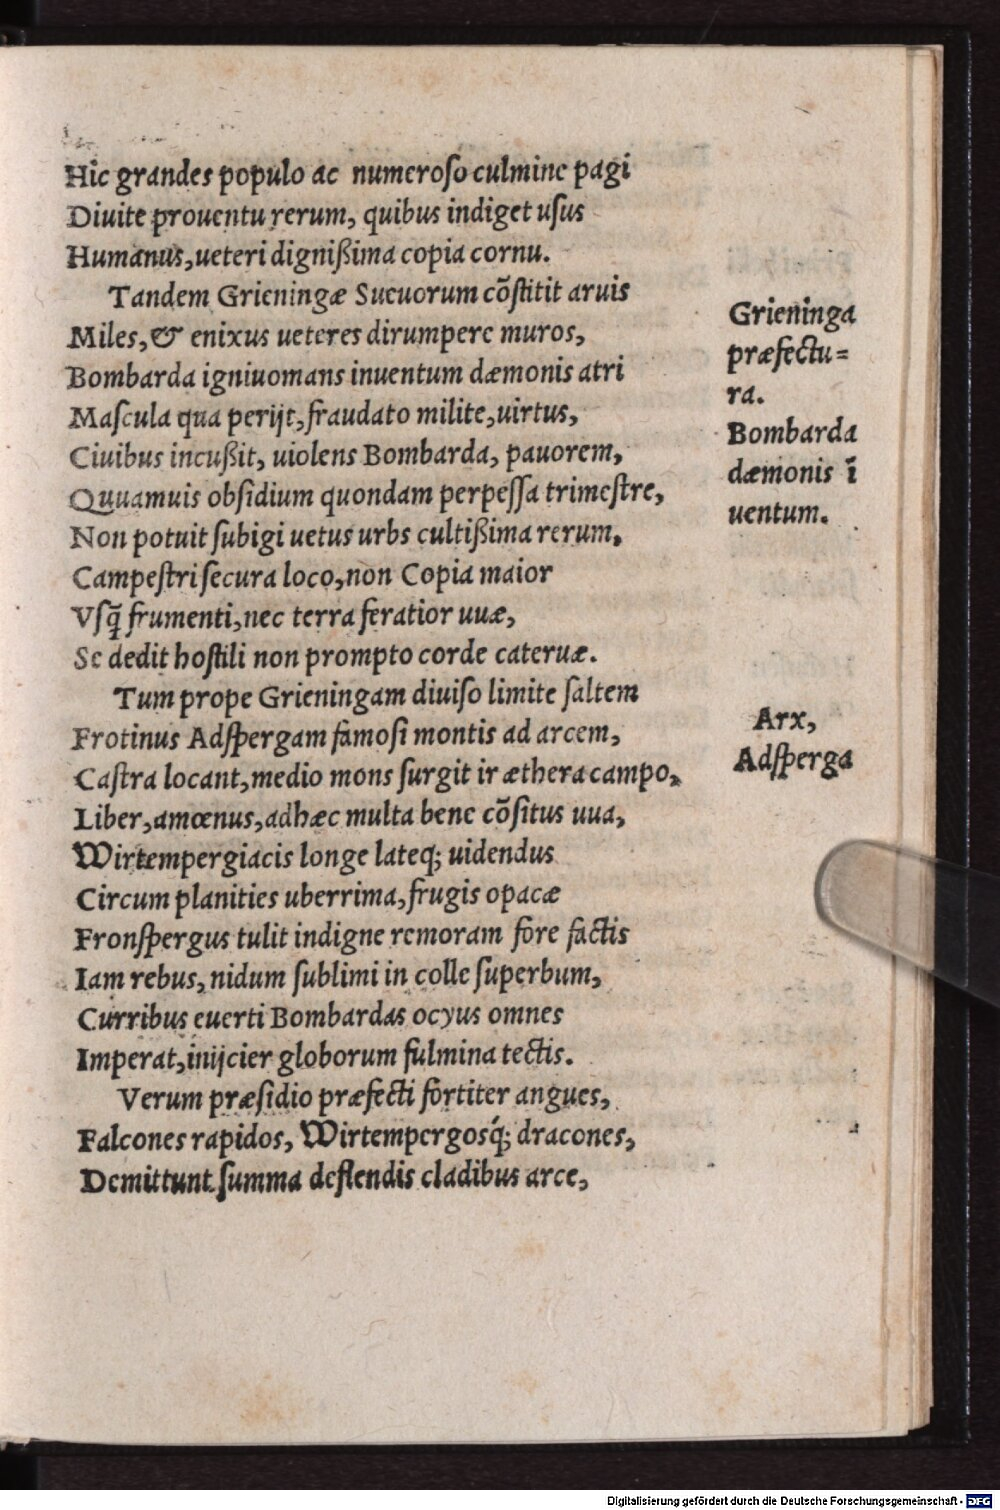 Hic grandes populo ac numeroſo culmine pagi
Diuite prouentu rerum, quibus indiget uſus
Humanus, ueteri dignißima copia cornu.
Tandem Grieningæ Sueuorum cõſtitit aruis
Miles, & enixus ueteres dirumpere muros,
Bombarda igniuomans inuentum dæmonis atri
Maſcula qua perijt, fraudato milite, uirtus,
Ciuibus incußit, uiolens Bombarda, pauorem,
Quuamuis obſidium quondam perpeſſa trimeſtre,
Non potuit ſubigi uetus urbs cultißima rerum,
Campeſtri ſecura loco, non Copia maior
Vſq̃ frumenti, nec terra feratior uuæ,
Se dedit hoſtili non prompto corde cateruæ.
Tum prope Grieningam diuiſo limite ſaltem
Frotinus Adſpergam famoſi montis ad arcem,
Caſtra locant, medio mons ſurgit in æthera campo,
Liber, amœnus, adhæc multa bene cõſitus uua,
Wirtempergiacis longe lateq; uidendus
Circum planities uberrima, frugis opacæ
Fronſpergus tulit indigne remoram fore factis
Iam rebus, nidum ſublimi in colle ſuperbum,
Curribus euerti Bombardas ocyus omnes
Imperat, inijcier globorum fulmina tectis.
Verum præſidio præfecti fortiter angues,
Falcones rapidos, Wirtempergosq́; dracones,
Demittunt ſumma deflendis cladibus arce,
Grieninga
præfectu=
ra.
Bombarda
dæmonis ĩ
uentum.
Arx,
Adſperga
Digitalisierung gefördert durch die Deutsche Forschungsgemeinschaft - DFG